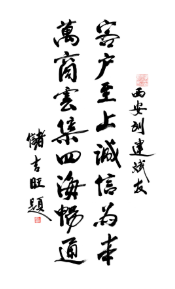 西安刘建斌友
客户至上诚信为本
萬商雲集四海畅通
储吉旺題